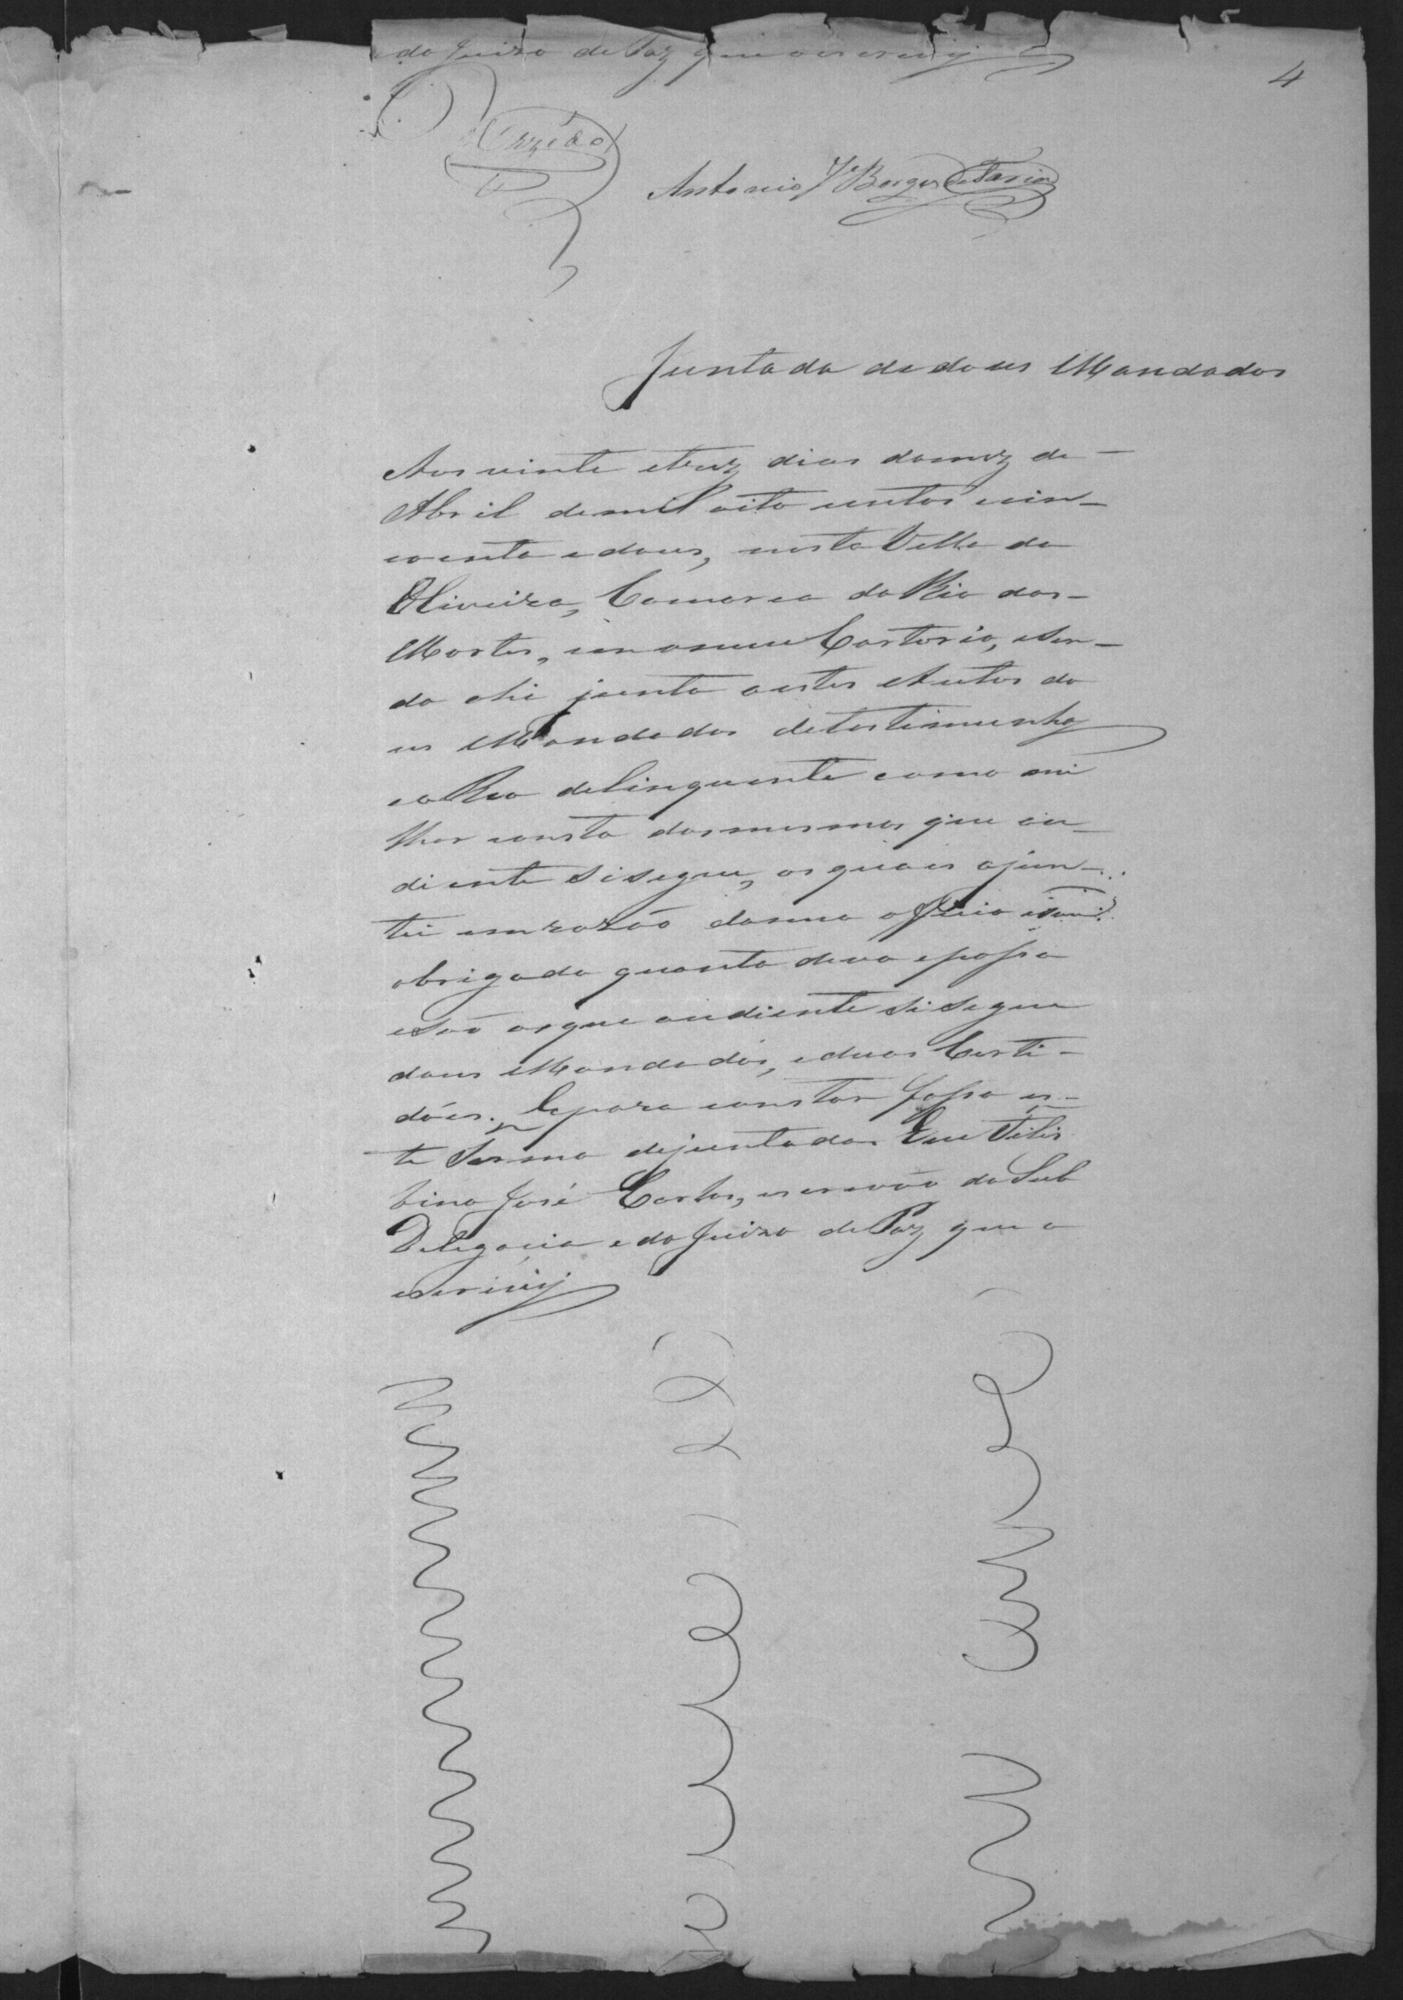 do Juizo de Paz que o escrevij
4
Antonio Je Borges de Faria
Juntada de dous Mandados
Aos vinte e trez dias do mez de
Abril de mil oito centos cin-
coenta e dous, nesta Villa de
Oliveira, Comarca do Rio das-
Mortes, em o meu Cartorio, e sen-
do ahi junto a estes Autos do
us Mandados de testimunhas
e o Reo delinquente como mi
lhor consta dos mesmos que au-
diente si segue, os quais ajun-
tei em razão do meu officio
obrigado quanto devo e posso
e são os que audiente si segue
dous Mandados, e duas Certi-
dóes. E para constar fasso es-
te Termo de juntada Eu Felis
bino José Cortes, escrevão da Sub
Delegacia e do Juizo de Paz que o
escrevij